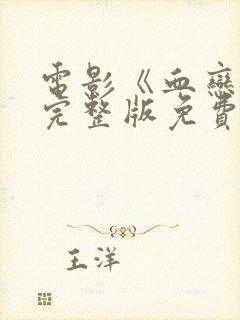 電影《血戀
完整版免費
王洋